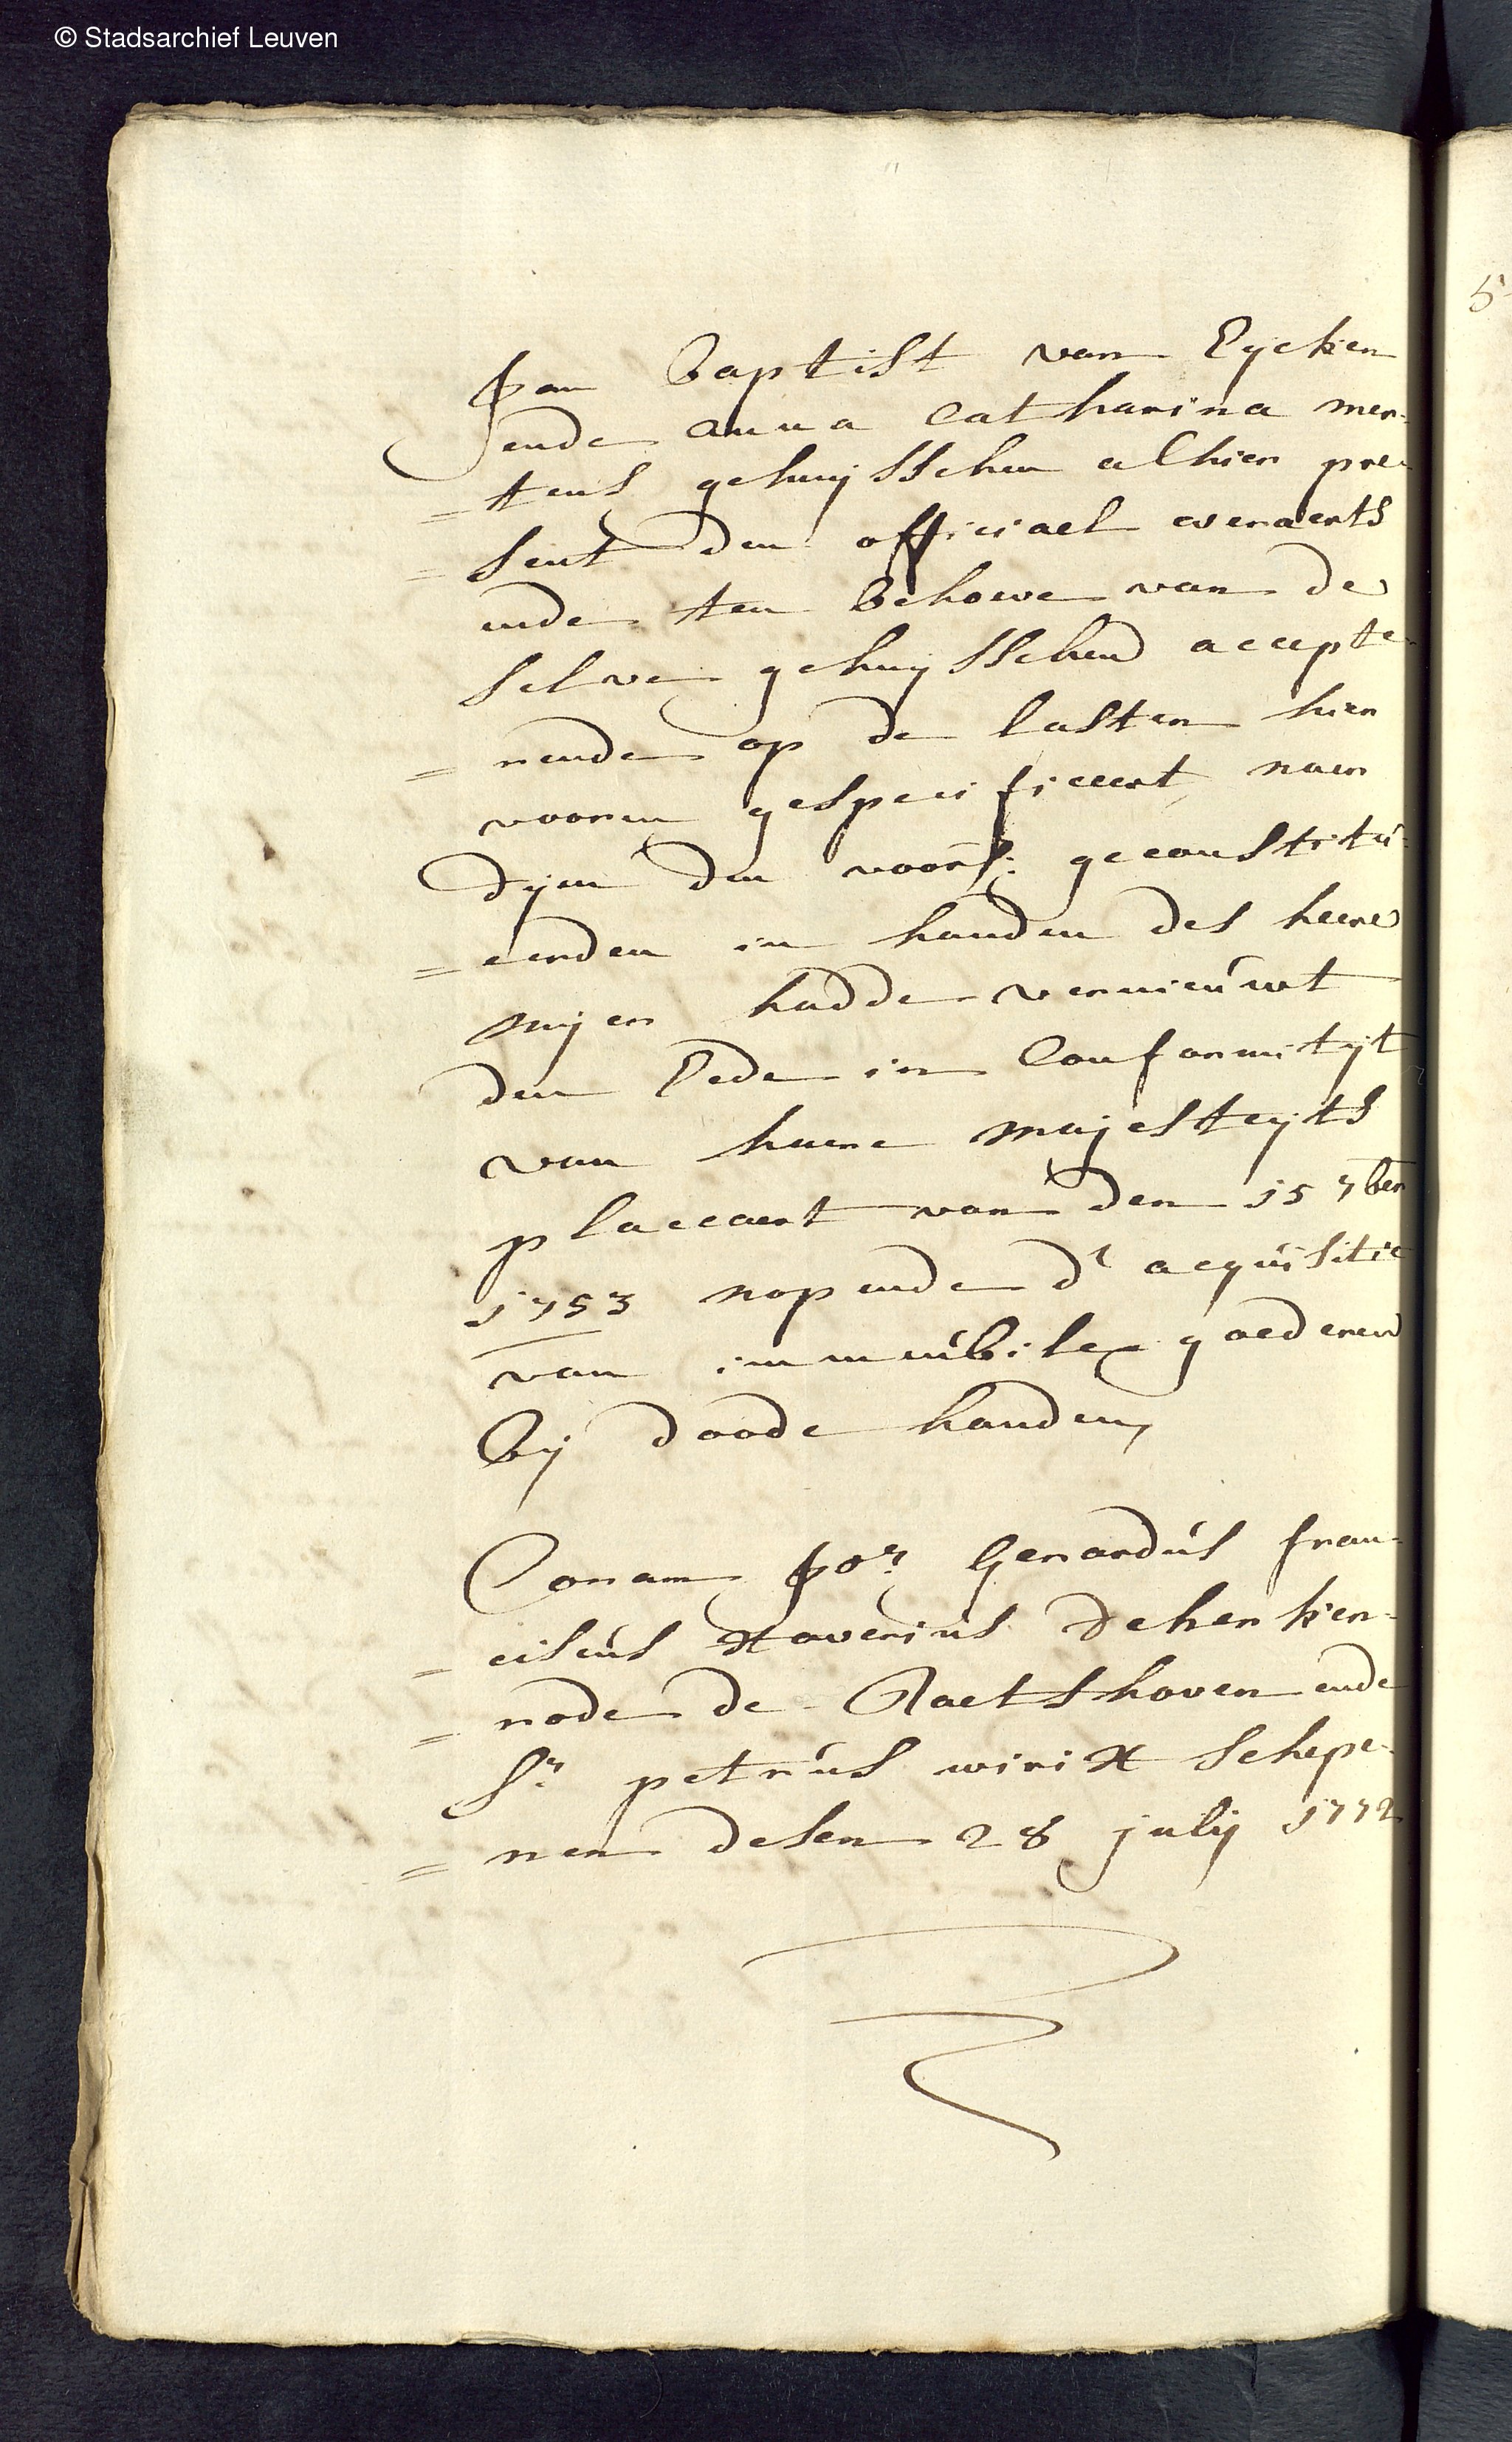 © Stadsarchief Leuven
Jan Baptist van Eycken
ende anna Catharina mer-
= tens gehuysschen alhier pre-
= sent den officiael everaerts
ende ten behoeve van de
selve gehuysschen accepte
= rende op de lasten hier
vooren gespecificeert, naer
dyen den voors: geconstitu-
= eerden in handen des heere
myer hadde vernieuwt
den Eede in Conformityt
van haere majesteyts
placcaert van den 15 7ber
1753 nopende d' acquisitie
van immeubile goederen
by doode handen,
Coram Jor Gerardus fran-
= ciscus Xaverius de herken-
= rode de Raetshoven ende
Sr petrus wirix schepe-
= nen desen 28 july 1772
5